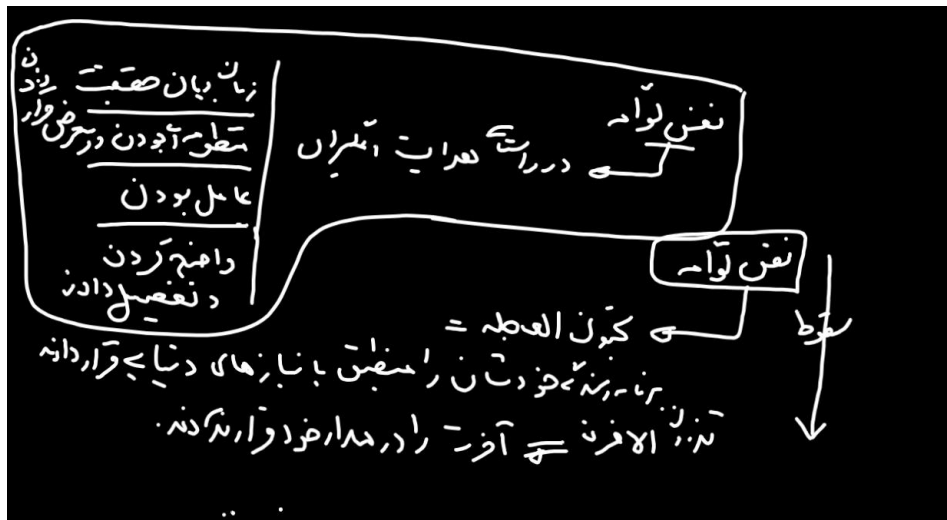 نفس لوّامه
در راستای هدایت دیگران
زمان بیان حقیقت
در معرض قرار دادن
بودن
عامل بودن
واضح کردن
و تفصیل دادن
نفس لوّامه
سقوط
تحبون العاجله =
برنامه زندگی خودشان را منطبق با نیازهای دنیایی قرار دادند
تذرون الاخرة = آخرت را در مدار خود قرار ندادند.